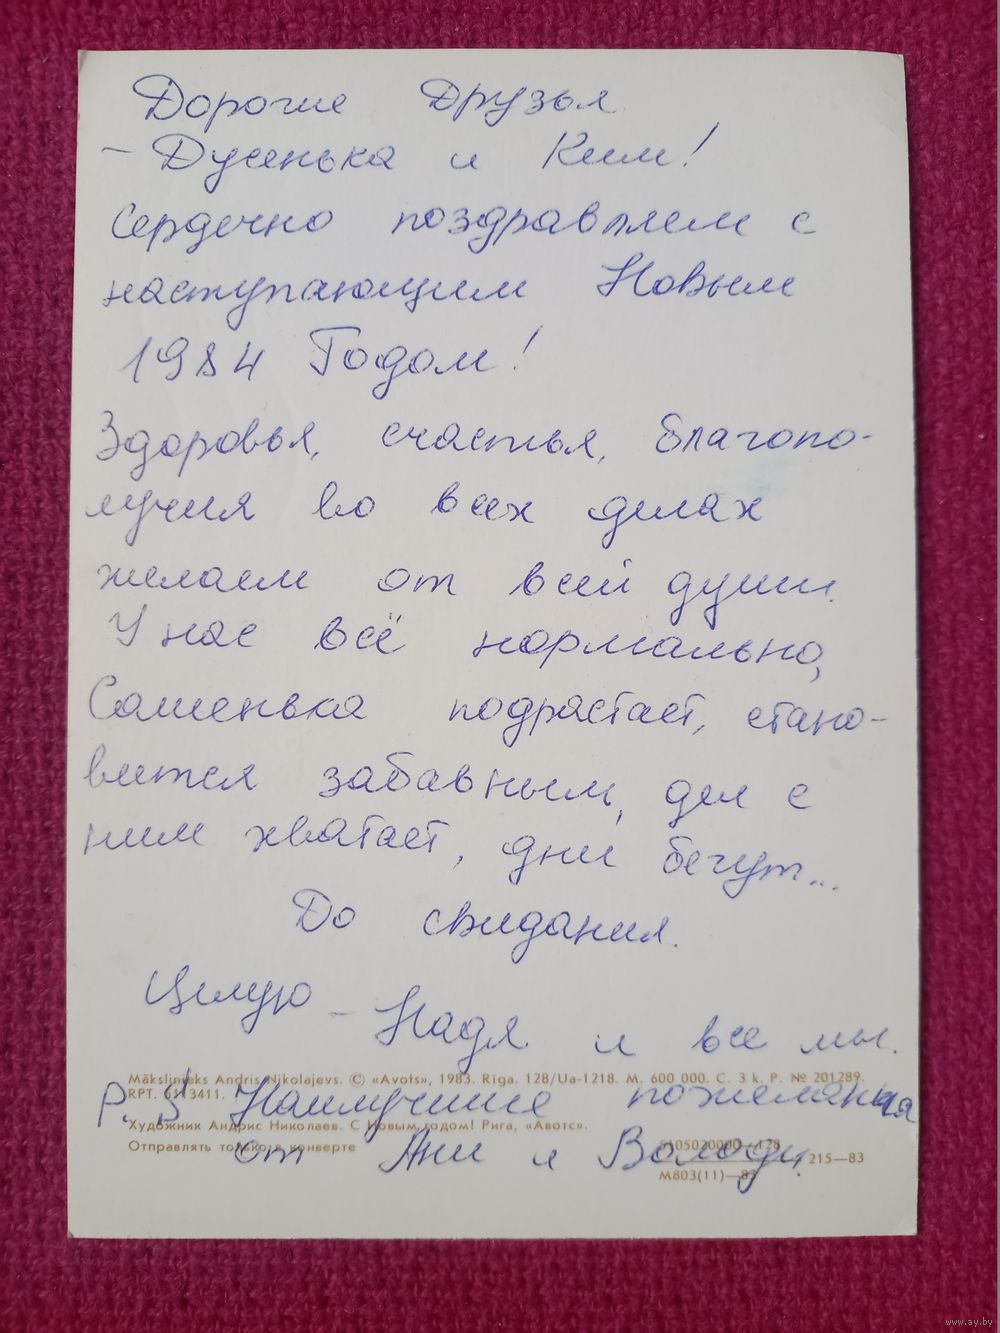 Дорогие Друзья
– Дусенька и Ким!
Сердечно поздравляем с
наступающим Новым
1984 Годом!
Здоровья, счастья, благопо-
лучия во всех делах
желаем от всей души.
У нас всё нормально,
Сашенька подрастает, стано-
вится забавным, дел с
ним хватает, дни бегут...
До свидания.
Целую – Надя и все мы.
Mākslinieks Andris Nikolajevs. © «Avots», 1983. Rīga. 128/Ua-1218. M. 600 000. C. 3 k. P. № 201289.
RPT. 3411.
P. S Наилучшие пожелания
Художник Андрис Николаев. С Новым годом! Рига, «Авотс».
Отправлять только в конверте
5105020000—128
215—83
М803(11)—83
от Ани и Володи.
www.ay.by